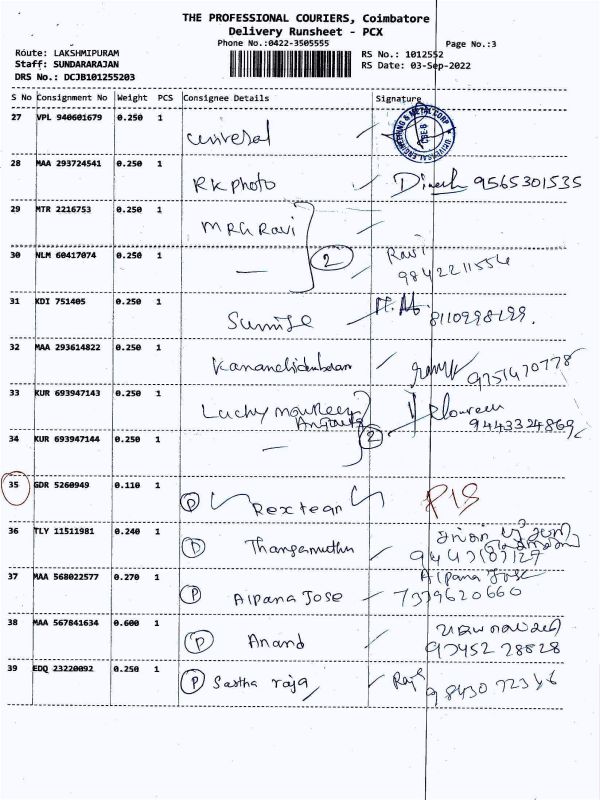 THE PROFESSIONAL COURIERS, Coimbatore
Delivery Runsheet - PCX
Phone No.:0422-3505555
Page No.:3
Route: LAKSHMIPURAM
RS No.: 1012552
Staff: SUNDARARAJAN
RS Date: 03-Sep-2022
DRS No.: DCJB101255203
S No Consignment No Weight PCS Consignee Details Signature
27 VPL 940601679 0.250 1 universal
UNIVERSAL ENGINEERING & METAL CORP CBE-6
28 MAA 293724541 0.250 1 RK photo Dinesh 9565301535
29 MTR 2216753 0.250 1 MRG Ravi
2
30 NLM 60417074 0.250 1 — Ravi
9842211556
31 KDI 751405 0.250 1 8110998199.
32 MAA 293614822 0.250 1 9751470778
33 KUR 693947143 0.250 1 Lucky
9443324869
34 KUR 693947144 0.250 1 — 2
35 GDR 5260949 0.110 1 P Rextean P/S
36 TLY 11511981 0.240 1 P Thangamuthu
37 MAA 568022577 0.270 1 P Alpana Jose Alpana Jose
7339620660
38 MAA 567841634 0.600 1 P Anand
97452 28828
39 EDQ 23220092 0.250 1 P Sastha raja Raja